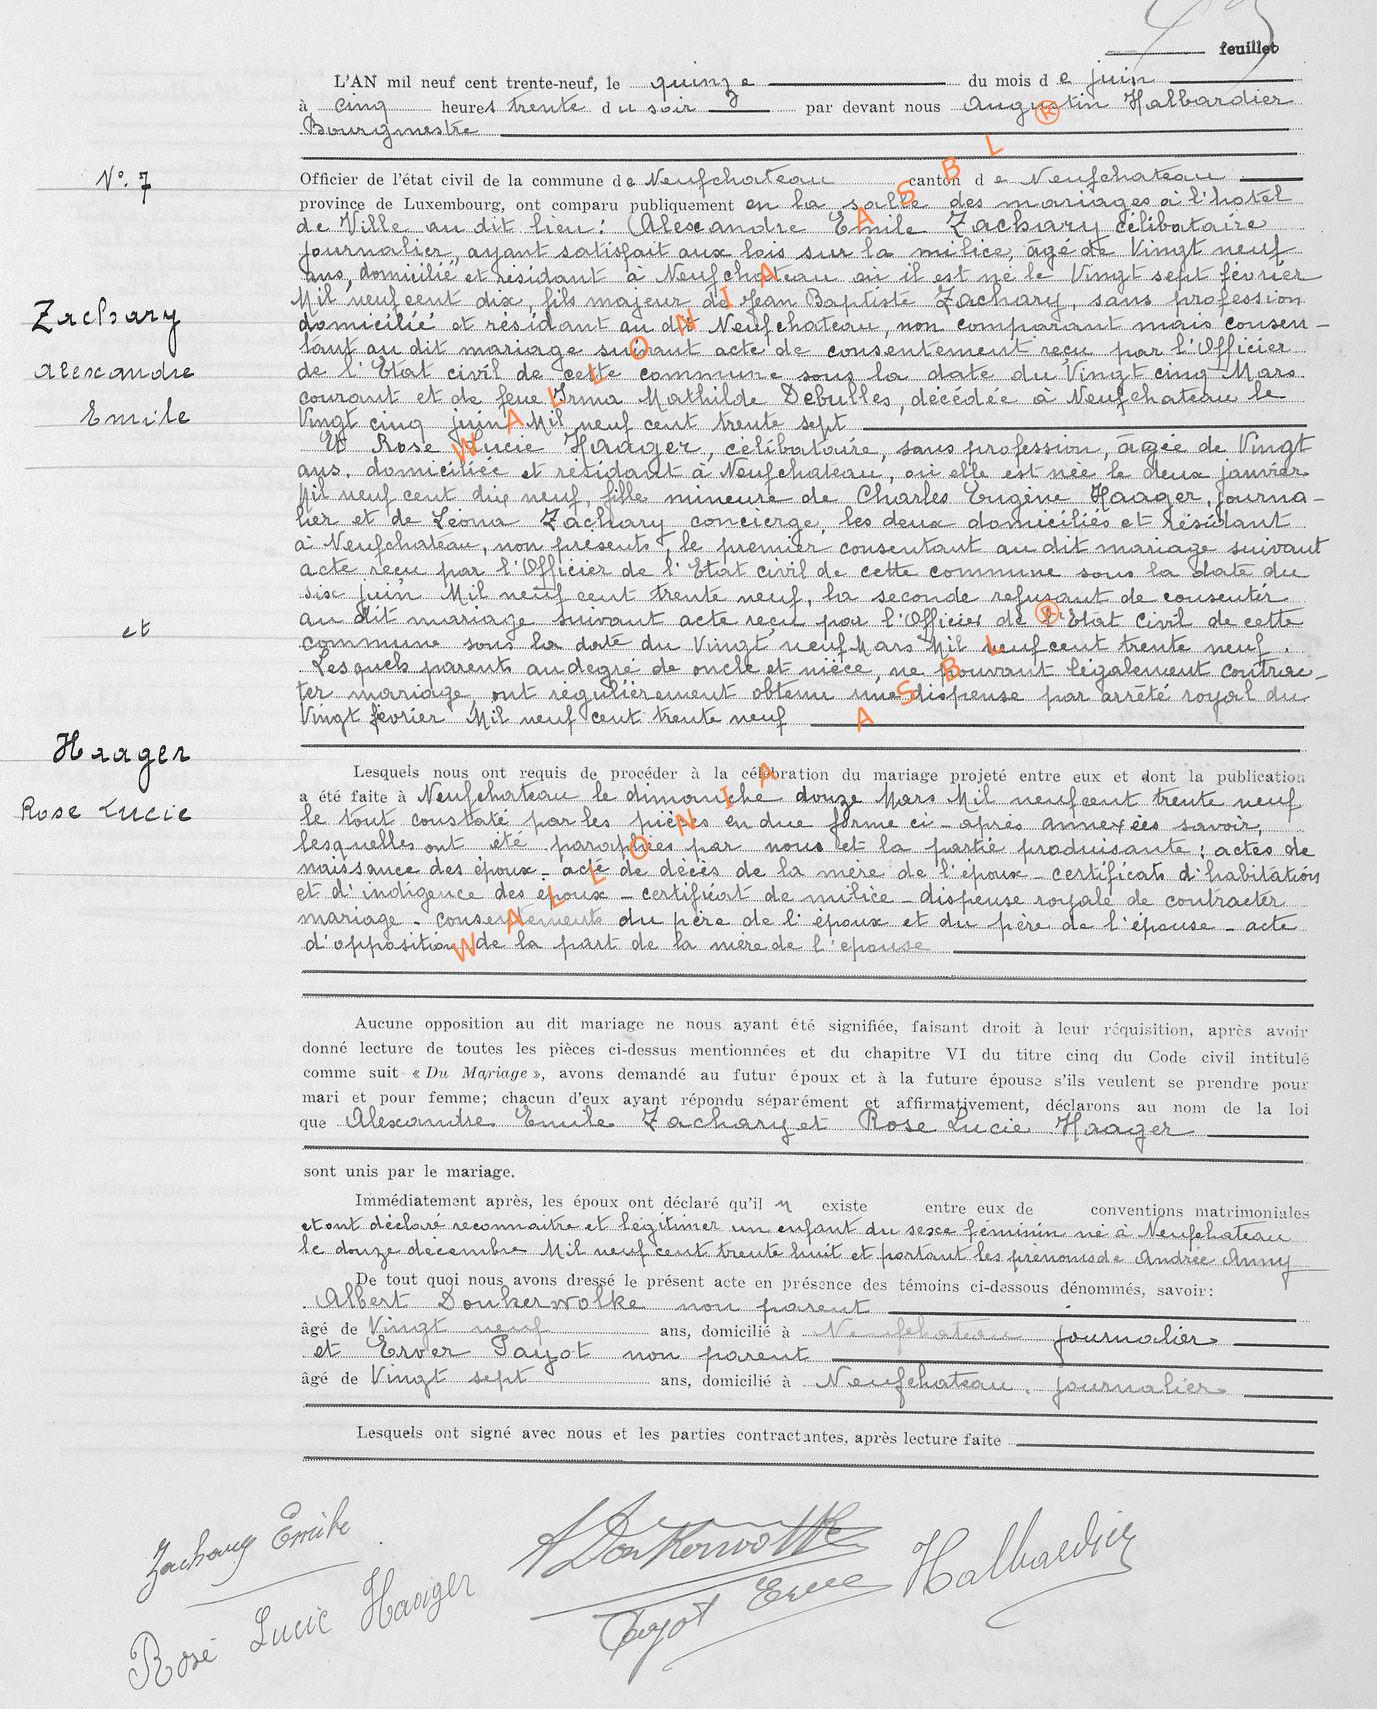 feuillet
L'AN mil neuf cent trente-neuf, le quinze du mois de juin
à cinq heures trente du soir par devant nous Augustin Halbardier
Bourgmestre
N°. 7
Officier de l'état civil de la commune de Neufchateau canton de Neufchateau
province de Luxembourg, ont comparu publiquement en la salle des mariages à l'hotel
de Ville au dit lieu: Alexandre Emile Zachary célibataire
journalier, ayant satisfait aux lois sur la milice, âgé de Vingt neuf
ans, domicilié et résidant à Neufchateau où il est né le Vingt sept février
Mil neuf cent dix, fils majeur de Jean Baptiste Zachary, sans profession
domicilié et résidant au dit Neufchateau, non comparant mais consen-
tant au dit mariage suivant acte de consentement reçu par l'Officier
de l'Etat civil de cette commune sous la date du Vingt cinq Mars
courant et de feue Irma Mathilde Debulles, décédée à Neufchateau le
Vingt cinq juin Mil neuf cent trente sept
Zachary
Alexandre
Emile
Et Rose Lucie Haager, célibataire, sans profession, âgée de Vingt
ans, domiciliée et résidant à Neufchateau, où elle est née le deux janvier
Mil neuf cent dix neuf, fille mineure de Charles Eugène Haager, journa-
lier et de Léona Zachary concierge, les deux domiciliés et résidant
à Neufchateau, non présents, le premier consentant au dit mariage suivant
acte reçu par l'Officier de l'Etat civil de cette commune sous la date du
six juin Mil neuf cent trente neuf, la seconde refusant de consentir
au dit mariage suivant acte reçu par l'Officier de l'Etat civil de cette
commune sous la date du Vingt neuf Mars Mil neuf cent trente neuf.
et
Lesquels parents au degré de oncle et nièce, ne pouvant légalement contrac-
ter mariage ont régulièrement obtenu une dispense par arrêté royal du
Vingt février Mil neuf cent trente neuf
Haager
Rose Lucie
Lesquels nous ont requis de procéder à la célébration du mariage projeté entre eux et dont la publication
a été faite à Neufchateau le dimanche douze Mars Mil neuf cent trente neuf
le tout constaté par les pièces en due forme ci-après annexées savoir,
lesquelles ont été paraphées par nous et la partie produisante: actes de
naissance des époux - acte de décès de la mère de l'époux - certificats d'habitation
et d'indigence des époux - certificat de milice - dispense royale de contracter
mariage - consentements du père de l'époux et du père de l'épouse - acte
d'opposition de la part de la mère de l'épouse
Aucune opposition au dit mariage ne nous ayant été signifiée, faisant droit à leur réquisition, après avoir
donné lecture de toutes les pièces ci-dessus mentionnées et du chapitre VI du titre cinq du Code civil intitulé
comme suit « Du Mariage », avons demandé au futur époux et à la future épouse s'ils veulent se prendre pour
mari et pour femme; chacun d'eux ayant répondu séparément et affirmativement, déclarons au nom de la loi
que Alexandre Emile Zachary et Rose Lucie Haager
sont unis par le mariage.
Immédiatement après, les époux ont déclaré qu'il n existe entre eux de conventions matrimoniales
et ont déclaré reconnaitre et légitimer un enfant du sexe féminin né à Neufchateau
le douze décembre Mil neuf cent trente huit et portant les prénoms de Andrée Anny
De tout quoi nous avons dressé le présent acte en présence des témoins ci-dessous dénommés, savoir:
Albert Donkerwolke non parent
âgé de Vingt neuf ans, domicilié à Neufchateau journalier
et Erver Payot non parent
âgé de Vingt sept ans, domicilié à Neufchateau, journalier
Lesquels ont signé avec nous et les parties contractantes, après lecture faite
Zachary Emile
Rose Lucie Haager
A Donkerwolke
Halbardier
WALLONIA ASBL ®
WALLONIA ASBL ®